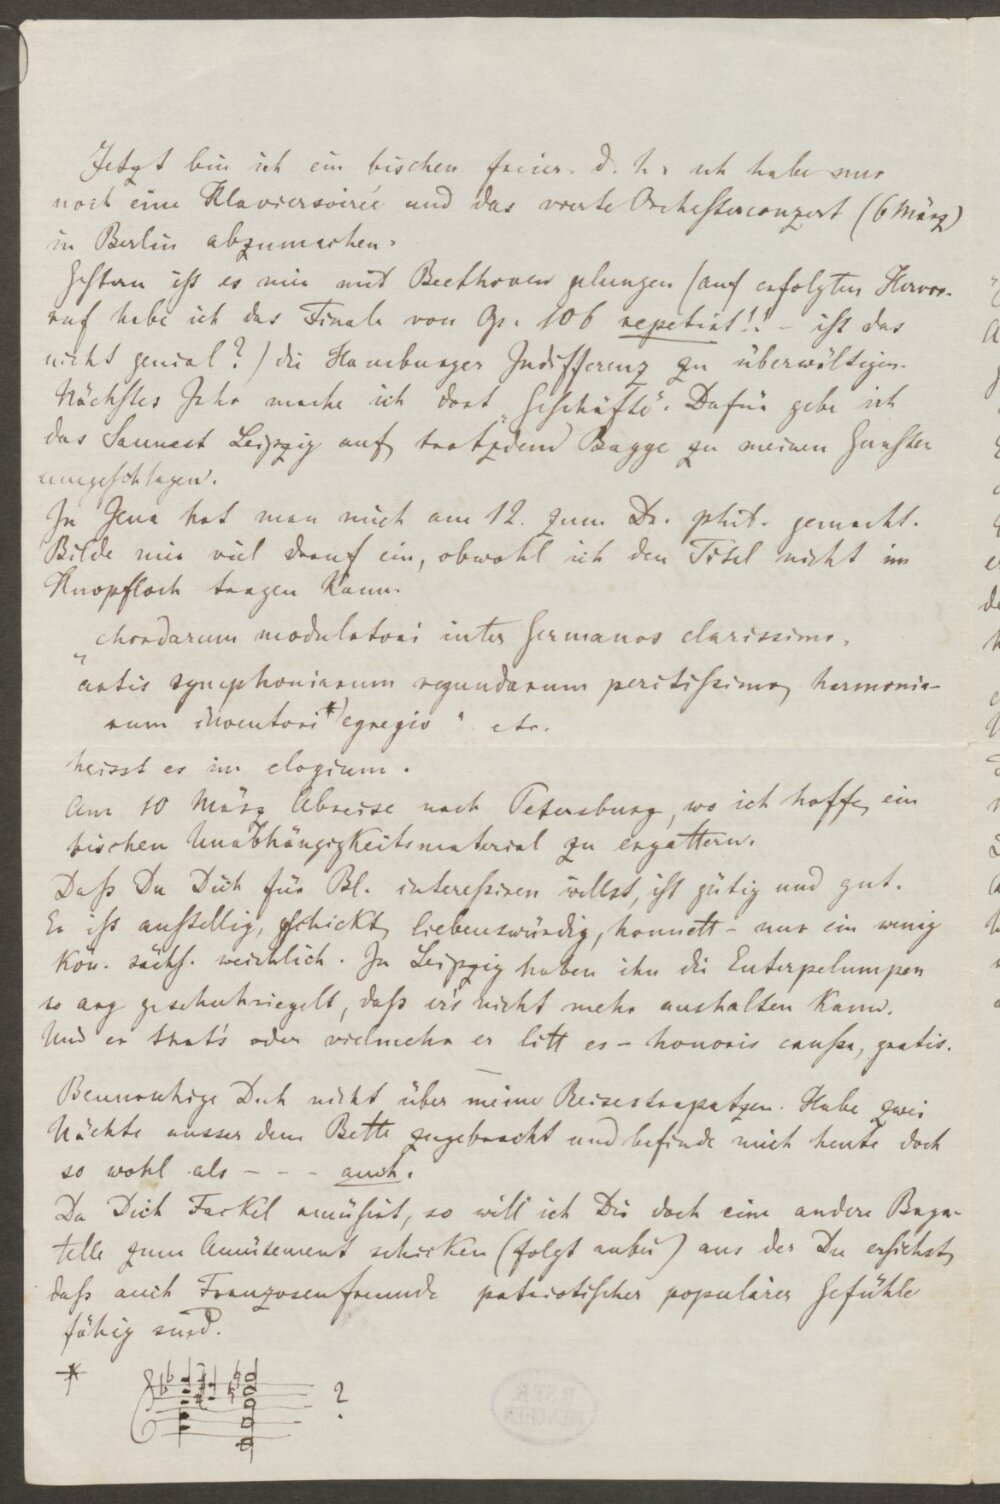 Jetzt bin ich ein bischen freier. d. h. ich habe nur
noch eine Klaviersoirée und das vierte Orchesterconzert (6 März)
in Berlin abzumachen.
Gestern ist es mir mit Beethoven gelungen (auf erfolgten Hervor-
ruf habe ich das Finale von Op. 106 repetirt!! – ist das
nicht genial?) die Hamburger Indifferenz zu überwältigen.
Nächstes Jahr mache ich dort „Geschäfte". Dafür gebe ich
das Leipzig auf, trotzdem Bagge zu meinen Gunsten
umgeschlagen.
In Jena hat man mich am 12. zum Dr. phil. gemacht.
Bilde mir viel drauf ein, obwohl ich den Titel nicht im
Knopfloch tragen kann.
chordarum modulatori inter Germanos clarissimo,
„artis symphoniarum regundarum peritissimo, harmonia-
rum inventori *) egregio " etc.
heisst es im elogium.
Am 10 März Abreise nach Petersburg, wo ich hoffe, ein
bischen Unabhängigkeitsmaterial zu ergattern.
Daß Du Dich für Bl. interessiren willst, ist gütig und gut.
Er ist anstellig, geschickt, liebenswürdig, honnett – nur ein wenig
kön. sächs. weichlich. In Leipzig haben ihn die Euterpelumpen
so arg geschuhriegelt, daß er's nicht mehr aushalten kann.
Und er that's oder vielmehr er litt es – honoris caussa, gratis.
Beunruhige Dich nicht über meine Reisestrapatzen. Habe zwei
Nächte ausser dem Bette zugebracht und befinde mich heute doch
so wohl als – – – auch.
Da Dich Fackel amüsirt, so will ich Dir doch eine andere Baga-
telle zum Amüsement schicken (folgt anbei) aus der Du ersiehst,
daß auch Franzosenfreunde patriotischer populärer Gefühle
fähig sind.
* ?